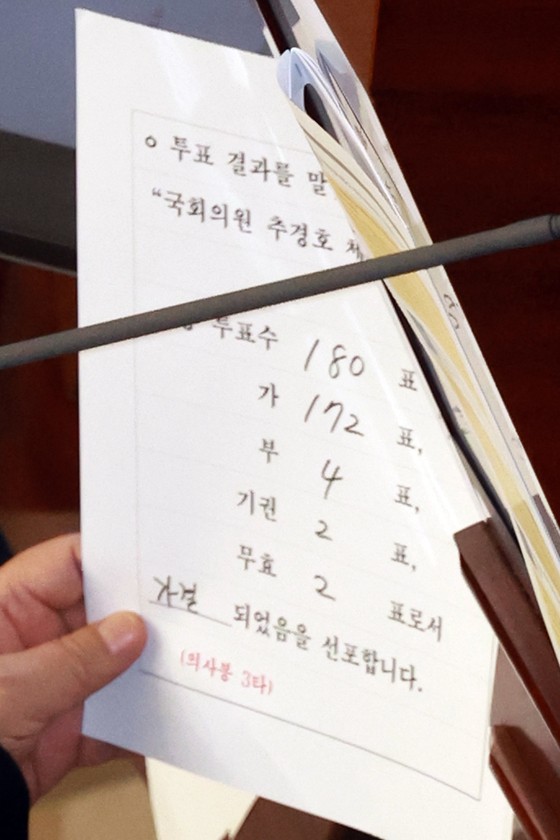 ㅇ 투표 결과를 말
“국회의원 추경호 체
투표수 180 표
가 172 표,
부 4 표,
기권 2 표,
무효 2 표로서
가결 되었음을 선포합니다.
(의사봉 3타)